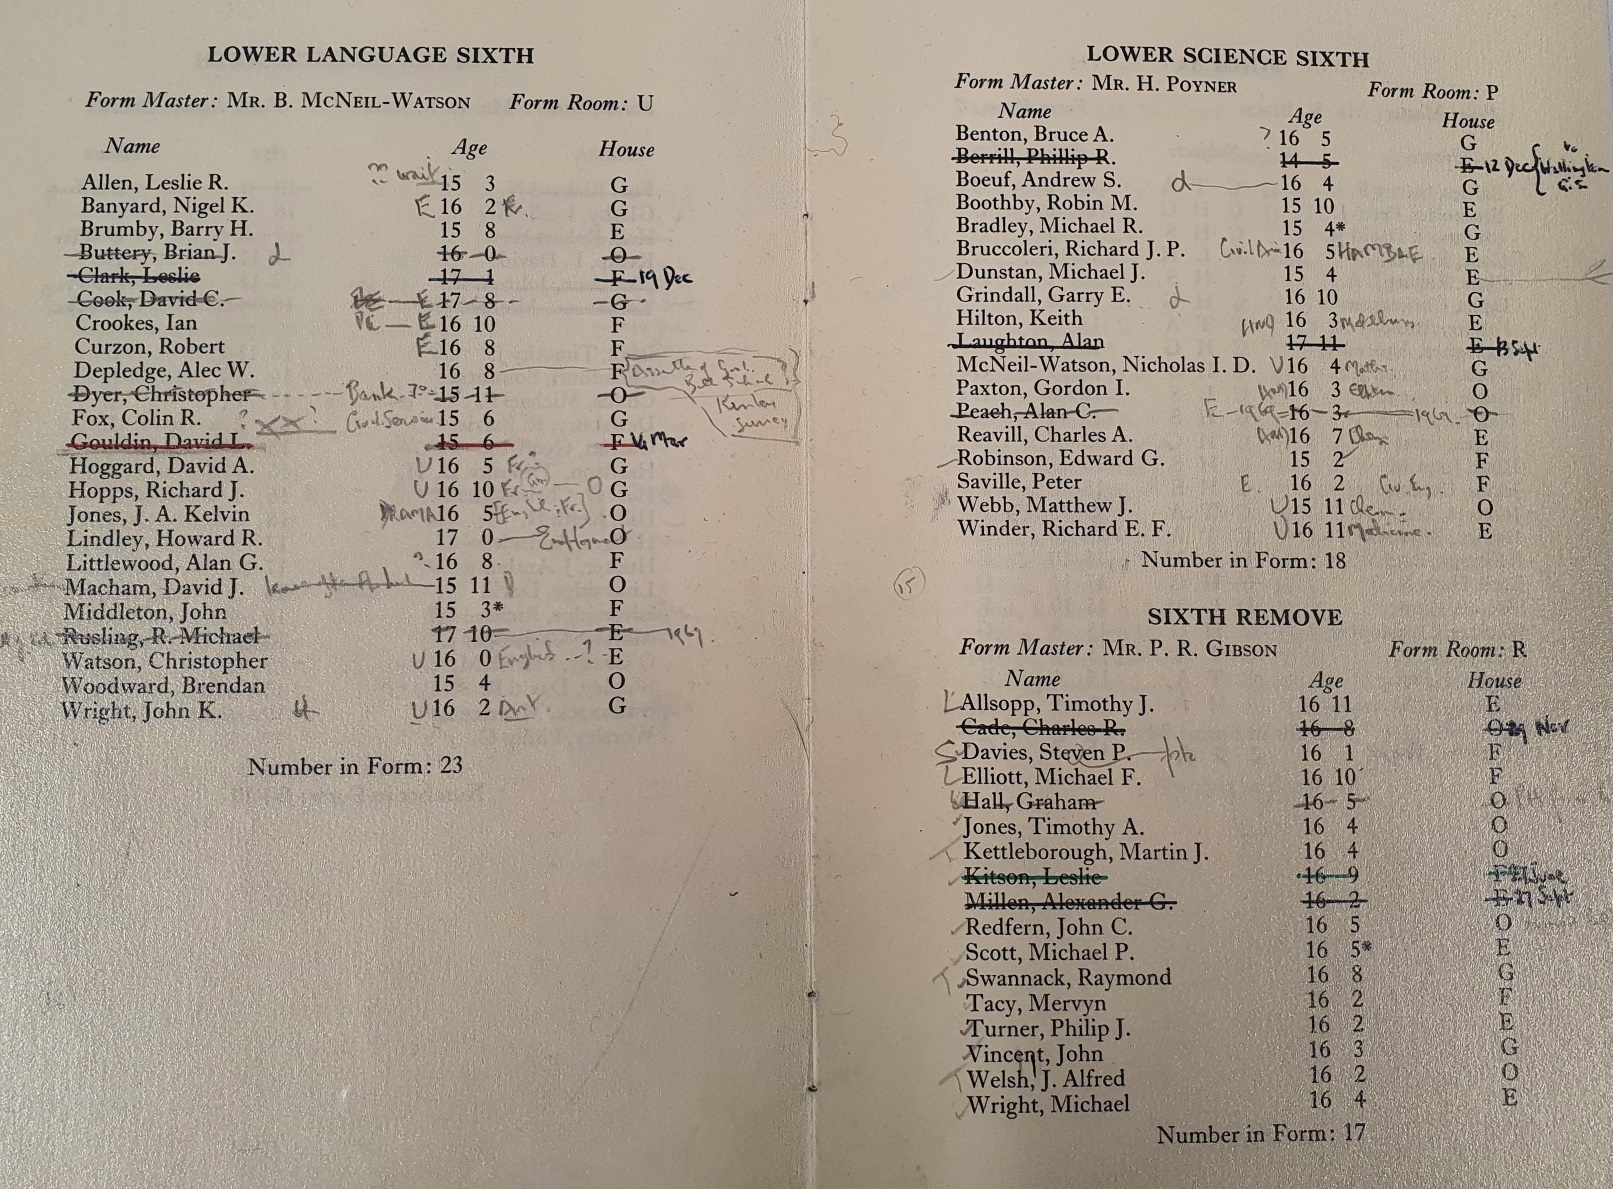 LOWER LANGUAGE SIXTH
Form Master: MR. B. MCNEIL-WATSON Form Room: U
Name Age House
Allen, Leslie R. ?? wait 15 3 G
Banyard, Nigel K. E 16 2 G
Brumby, Barry H. 15 8 E
Buttery, Brian J. d 16 0 O
Clark, Leslie 17 1 F 19 Dec
Cook, David C. E 17 8 G
Crookes, Ian E 16 10 F
Curzon, Robert E 16 8 F
Depledge, Alec W. 16 8 F
Dyer, Christopher Bank 15 11 O
Fox, Colin R. ? XX ? Civil Service 15 6 G
Gouldin, David L. 15 6 F Mar
Hoggard, David A. U 16 5 Fr. G
Hopps, Richard J. U 16 10 Fr O G
Jones, J. A. Kelvin DRAMA 16 5 O
Lindley, Howard R. 17 0 O
Littlewood, Alan G. ? 16 8 F
Macham, David J. 15 11 O
Middleton, John 15 3* F
Rusling, R. Michael 17 10 E 1969.
Watson, Christopher U 16 0 English ? E
Woodward, Brendan 15 4 O
Wright, John K. U 16 2 G
Number in Form: 23
LOWER SCIENCE SIXTH
Form Master: MR. H. POYNER Form Room: P
Name Age House
Benton, Bruce A. ? 16 5 G
Berrill, Phillip R. 14 5 E 12 Dec to Wallington G.S.
Boeuf, Andrew S. d 16 4 G
Boothby, Robin M. 15 10 E
Bradley, Michael R. 15 4* G
Bruccoleri, Richard J. P. 16 5 E
Dunstan, Michael J. 15 4 E
Grindall, Garry E. d 16 10 G
Hilton, Keith 16 3 E
Laughton, Alan 17 11 E 13 Sept
McNeil-Watson, Nicholas I. D. U 16 4 Maths. G
Paxton, Gordon I. 16 3 O
Peach, Alan C. E 1969 16 3 1969 O
Reavill, Charles A. 16 7 Chem E
Robinson, Edward G. 15 2 F
Saville, Peter E. 16 2 Civ. Eng. F
Webb, Matthew J. U 15 11 Chem. O
Winder, Richard E. F. U 16 11 Medicine. E
Number in Form: 18
15
SIXTH REMOVE
Form Master: MR. P. R. GIBSON Form Room: R
Name Age House
L Allsopp, Timothy J. 16 11 E
Cade, Charles R. 16 8 O 29 Nov
S Davies, Steven P. 16 1 F
L Elliott, Michael F. 16 10 F
Hall, Graham 16 5 O
Jones, Timothy A. 16 4 O
Kettleborough, Martin J. 16 4 O
Kitson, Leslie 16 9 F 27 June
Millen, Alexander G. 16 2 E 27 Sept
Redfern, John C. 16 5 O
Scott, Michael P. 16 5* E
Swannack, Raymond 16 8 G
Tacy, Mervyn 16 2 F
Turner, Philip J. 16 2 E
Vincent, John 16 3 G
Welsh, J. Alfred 16 2 O
Wright, Michael 16 4 E
Number in Form: 17